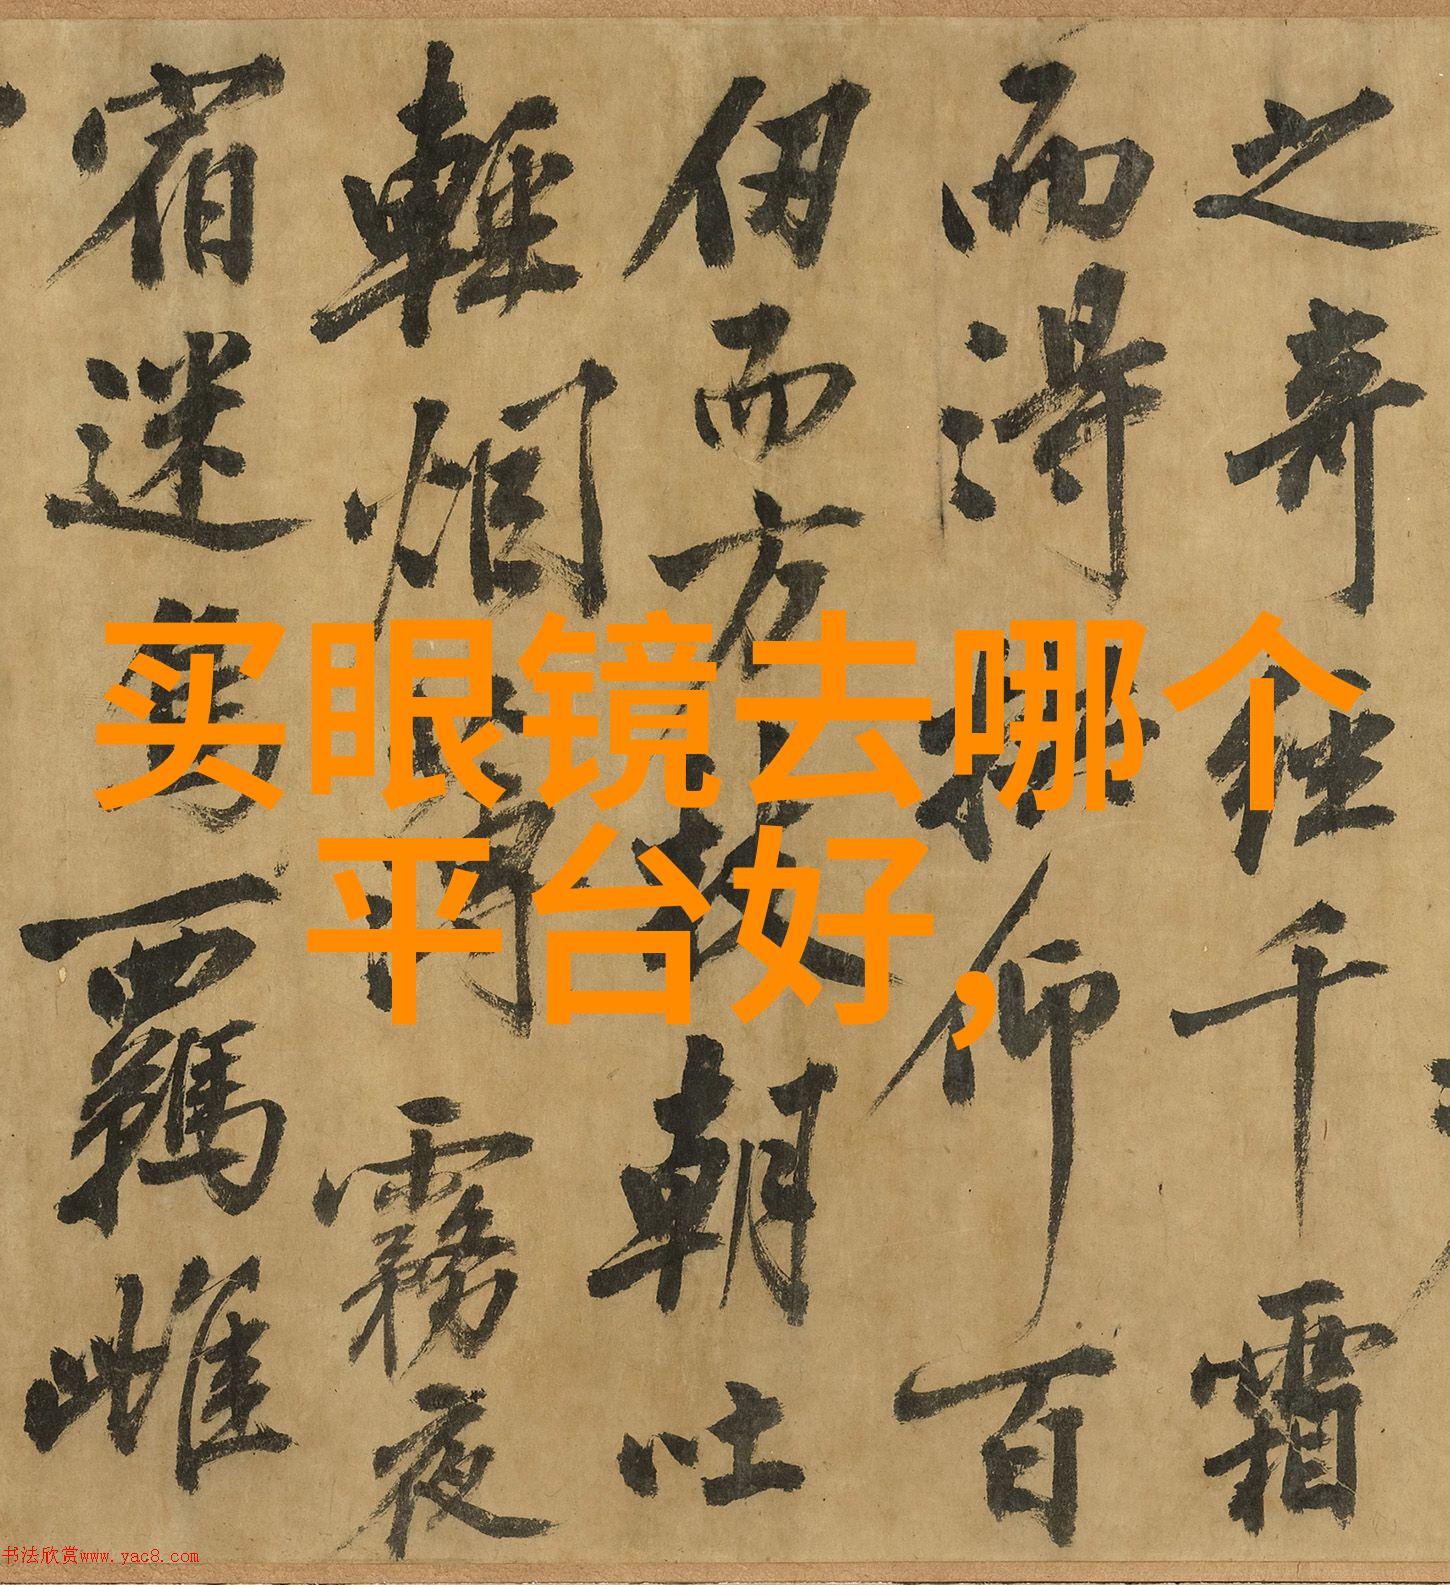 买眼镜去哪个
平台好，
之奇經千霜
而得仰百
伊而方故朝吐
輕烟霧夜
宿迷羈雌
书法欣赏www.yac8.com